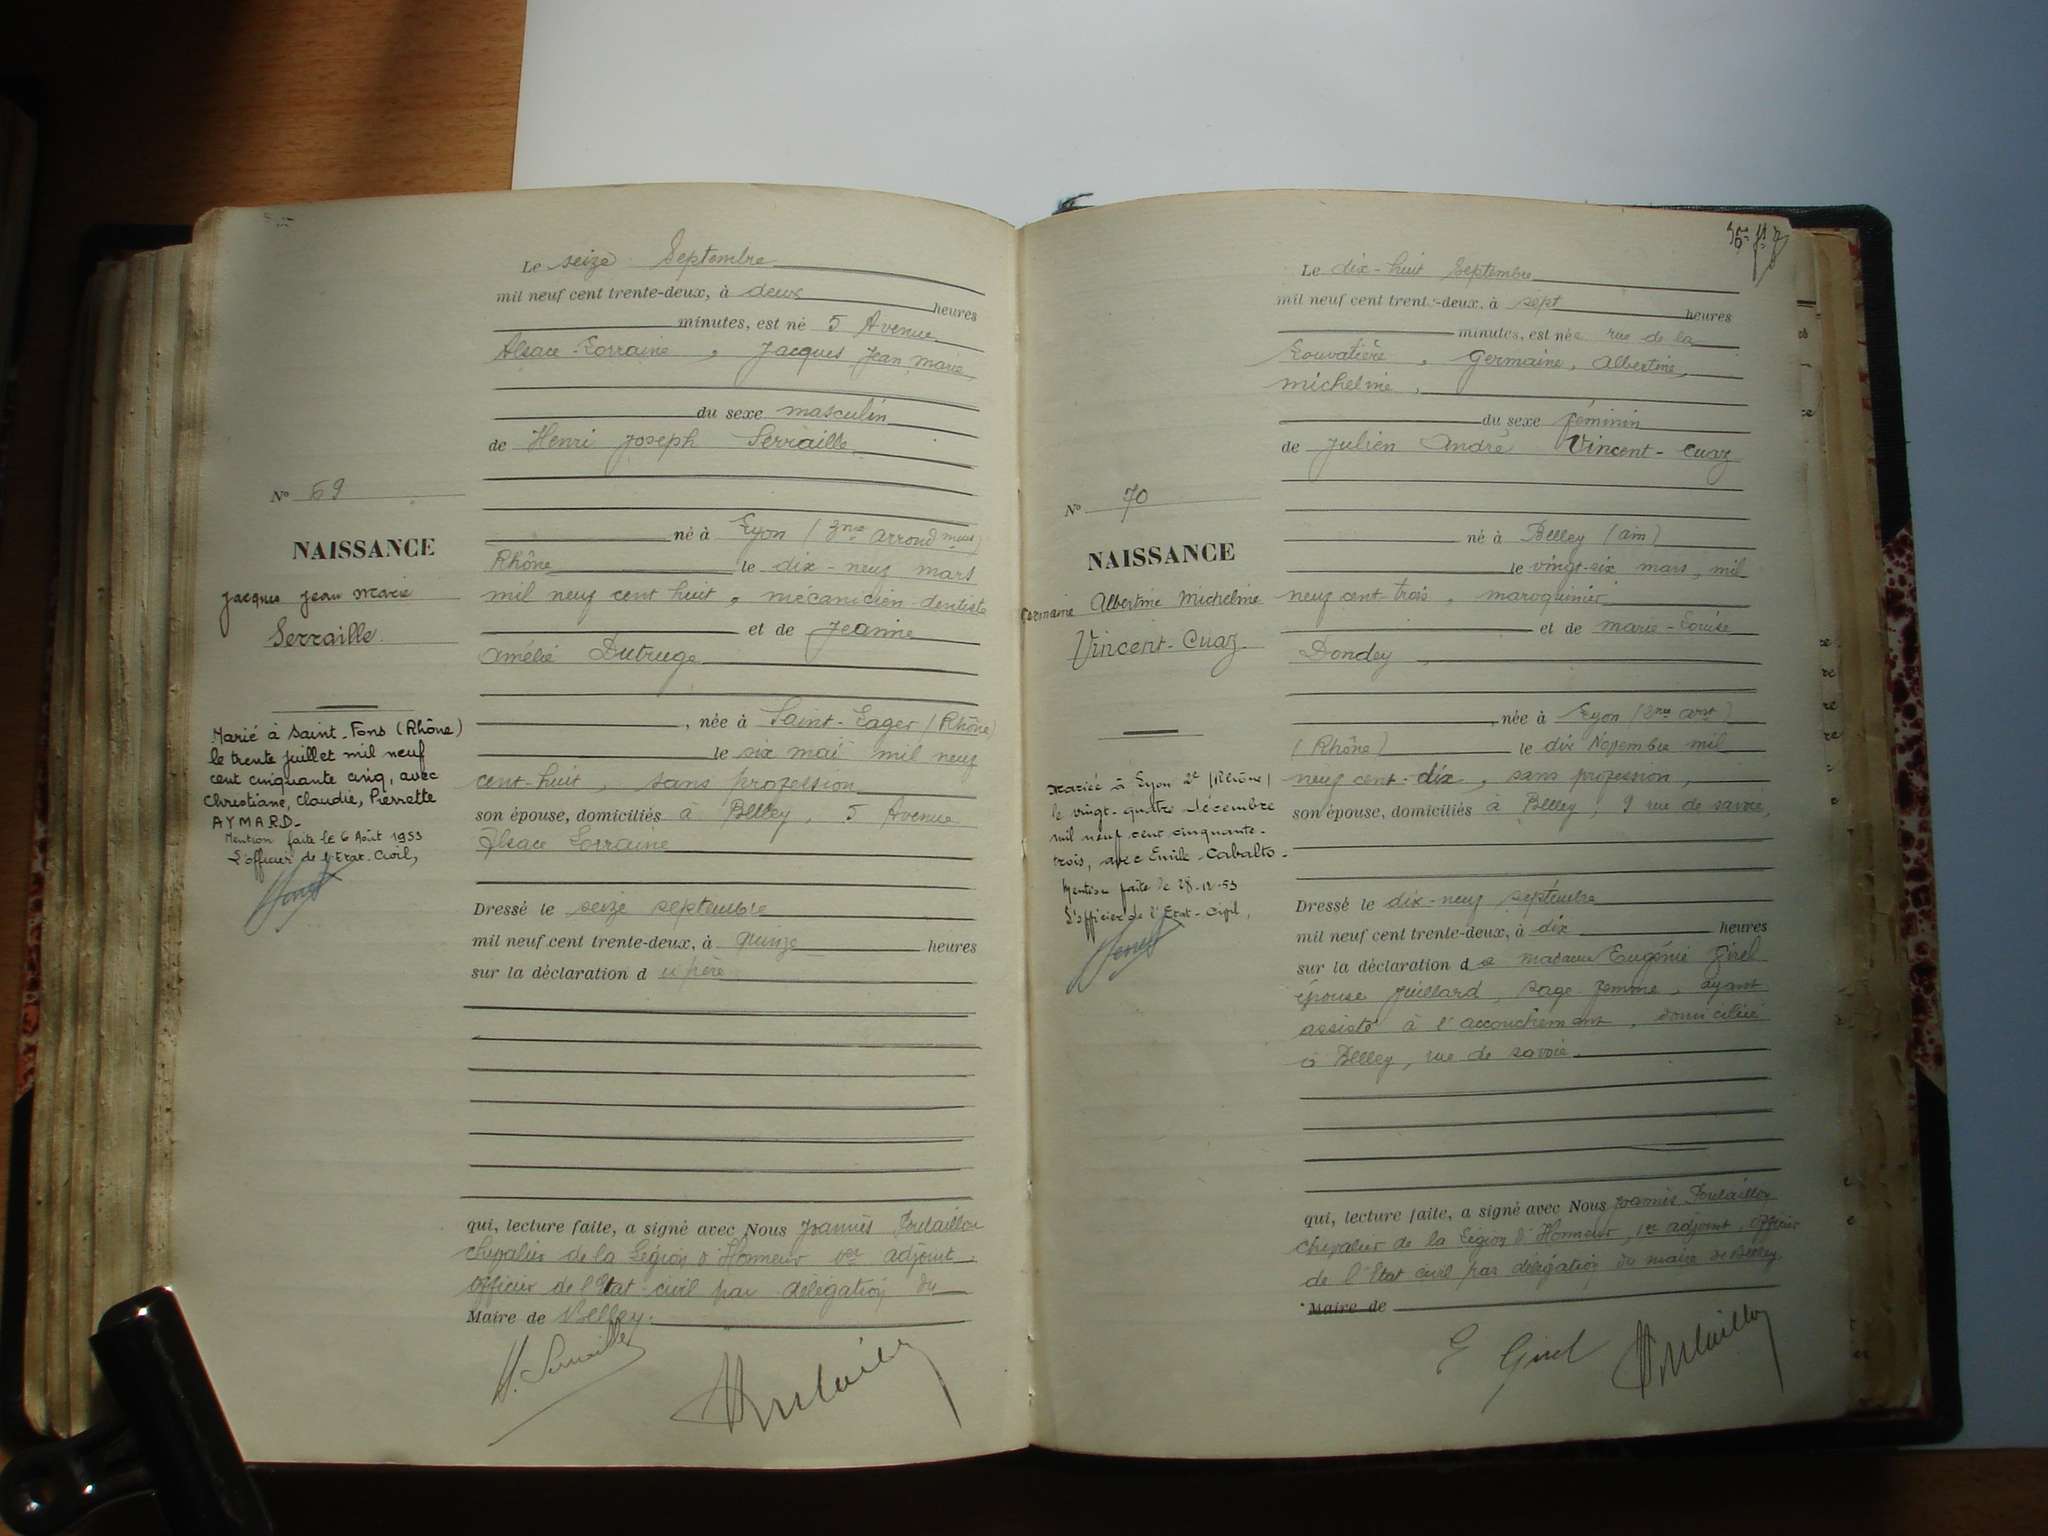 Le seize Septembre
mil neuf cent trente-deux, à deux heures
minutes, est né 5 Avenue
Alsace-Lorraine, Jacques Jean Marie
du sexe masculin
de Henri Joseph Serraille
né à Lyon (3me arrond ment)
Rhône le dix-neuf mars
mil neuf cent huit, mécanicien-dentiste
et de Jeanne
Amélie Dutruge
née à Saint-Lager (Rhône)
le six mai mil neuf
cent-huit, sans profession
son épouse, domiciliés à Belley, 5 Avenue
Alsace Lorraine
Dressé le seize septembre
mil neuf cent trente-deux, à quinze heures
sur la déclaration du père
qui, lecture faite, a signé avec Nous Joannès Poulaillon
chevalier de la Légion d'Honneur 1er adjoint
officier de l'Etat-civil par délégation du
Maire de Belley.
H. Serraille
No 69
NAISSANCE
Jacques Jean Marie
Serraille
Marié à Saint-Fons (Rhône)
le trente juillet mil neuf
cent cinquante cinq, avec
Christiane, Claudie, Pierrette
AYMARD_
Mention faite le 6 Août 1955
L'officier de l'Etat-Civil,
Le dix-huit Septembre
mil neuf cent trente-deux, à sept heures
minutes, est née rue de la
Louvatière, Germaine, Albertine,
Micheline,
du sexe féminin
de Julien André Vincent-Cuaz
né à Belley (Ain)
le vingt-six mars, mil
neuf cent-trois, maroquinier
et de Marie-Louise
Dondey,
née à Lyon (2me arrt)
(Rhône) le dix Novembre mil
neuf cent-dix, sans profession,
son épouse, domiciliés à Belley, 9 rue de Savoie,
Dressé le dix-neuf septembre
mil neuf cent trente-deux, à dix heures
sur la déclaration de madame Eugénie Girel
épouse Juillard, sage femme, ayant
assisté à l'accouchement, domiciliée
à Belley, rue de Savoie
qui, lecture faite, a signé avec Nous Joannès Poulaillon
chevalier de la Légion d'Honneur, 1er adjoint, officier
de l'Etat civil par délégation du maire de Belley
Maire de
E Girel
No 70
NAISSANCE
Germaine Albertine Micheline
Vincent-Cuaz
Mariée à Lyon 2e (Rhône)
le vingt-quatre décembre
mil neuf cent cinquante-
trois, avec Emile Cabalto-
Mention faite le 28-12-53
L'officier de l'Etat-Civil,